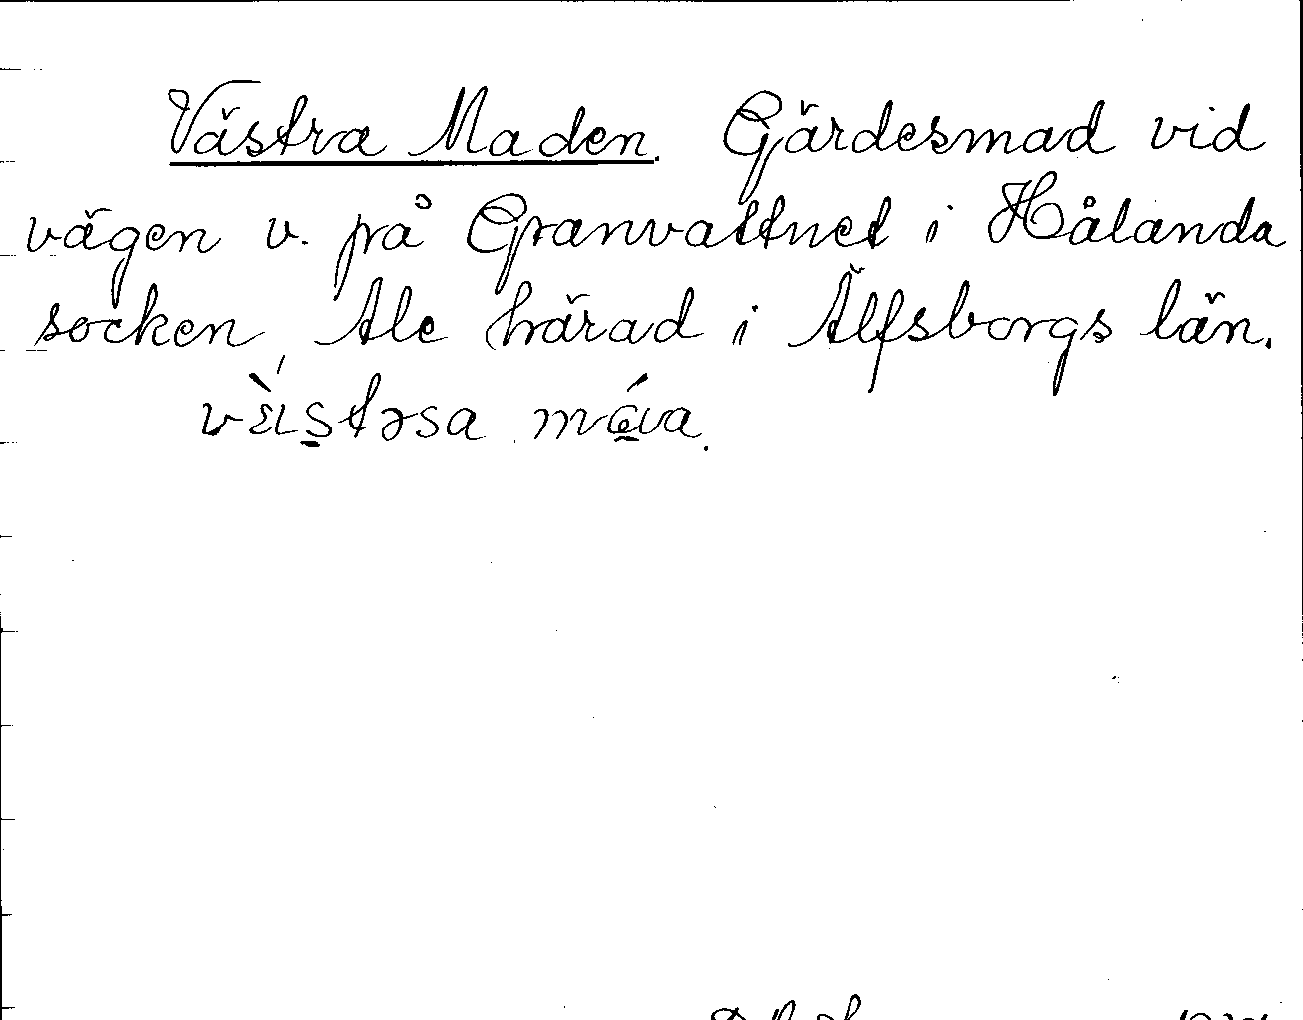 Västra Maden. Gärdesmad vid
vägen v. på Granvattnet i Hålanda
socken, Ale härad i Älfsborgs län.